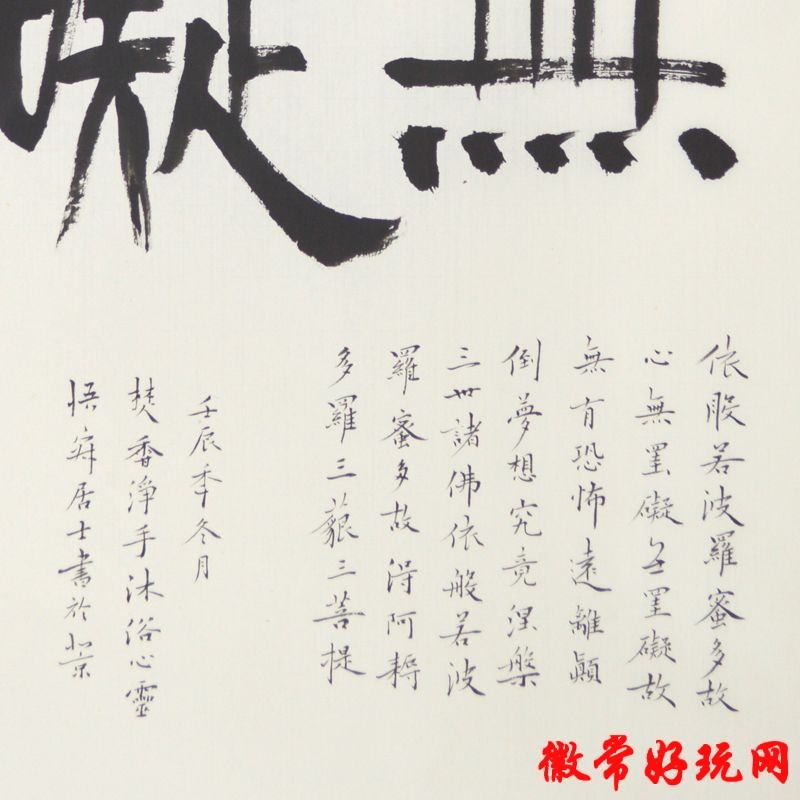 無
礙
依般若波羅蜜多故
心無罣礙无罣礙故
無有恐怖遠離顛
倒夢想究竟涅槃
三世諸佛依般若波
羅蜜多故得阿耨
多羅三藐三菩提
壬辰季冬月
焚香淨手沐浴心靈
悟寂居士書於北京
徽常好玩网